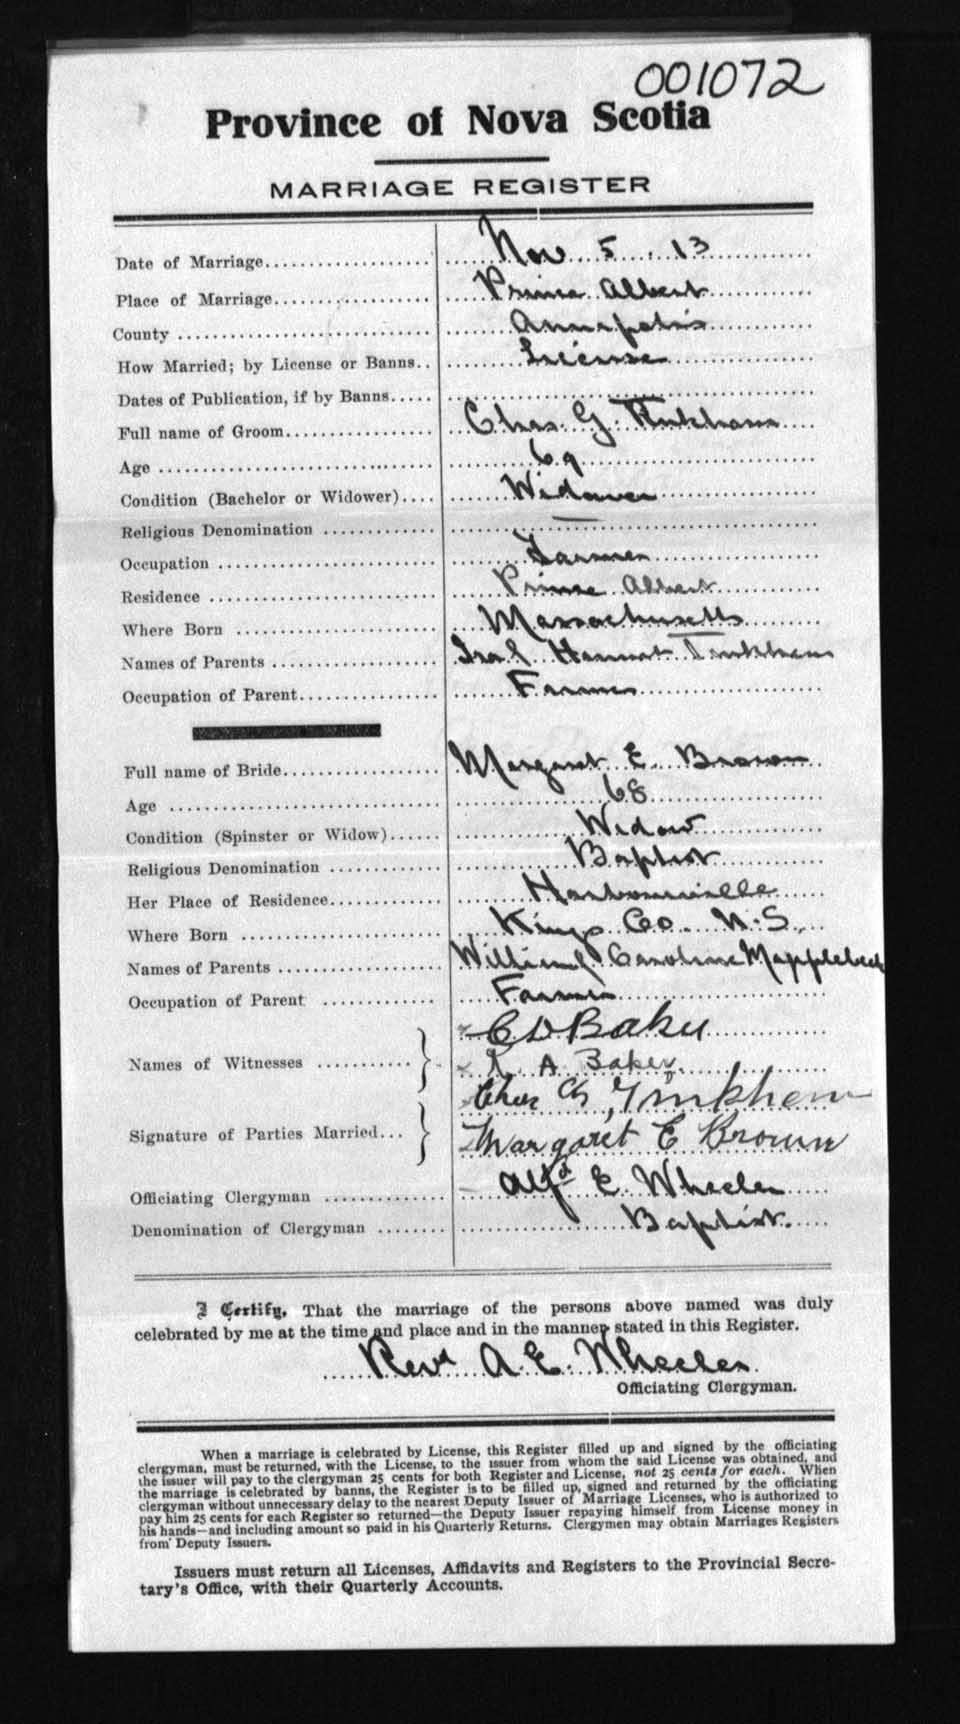 001072
Province of Nova Scotia
MARRIAGE REGISTER
Date of Marriage Nov 5, 13
Place of Marriage Prince Albert
County Annapolis
How Married; by License or Banns License
Dates of Publication, if by Banns
Full name of Groom Chas. G. Tinkham
Age 69
Condition (Bachelor or Widower) Widower
Religious Denomination —
Occupation Farmer
Residence Prince Albert
Where Born Massachusetts
Names of Parents Ira & Tinkham
Occupation of Parent Farmer
Full name of Bride Margaret E. Brown
Age 68
Condition (Spinster or Widow) Widow
Religious Denomination Baptist
Her Place of Residence Harbourville
Where Born Kings Co. N.S.
Names of Parents William & Caroline Mapplebeck
Occupation of Parent Farmer
Names of Witnesses C D Baker
A Baker
Signature of Parties Married Chas G Tinkham
Margaret E Brown
Officiating Clergyman Alfd E. Wheeler
Denomination of Clergyman Baptist.
I Certify, That the marriage of the persons above named was duly
celebrated by me at the time and place and in the manner stated in this Register.
Revd A. E. Wheeler
Officiating Clergyman.
When a marriage is celebrated by License, this Register filled up and signed by the officiating
clergyman, must be returned, with the License, to the issuer from whom the said License was obtained, and
the issuer will pay to the clergyman 25 cents for both Register and License, not 25 cents for each. When
the marriage is celebrated by banns, the Register is to be filled up, signed and returned by the officiating
clergyman without unnecessary delay to the nearest Deputy Issuer of Marriage Licenses, who is authorized to
pay him 25 cents for each Register so returned—the Deputy Issuer repaying himself from License money in
his hands—and including amount so paid in his Quarterly Returns. Clergymen may obtain Marriages Registers
from Deputy Issuers.
Issuers must return all Licenses, Affidavits and Registers to the Provincial Secre-
tary's Office, with their Quarterly Accounts.